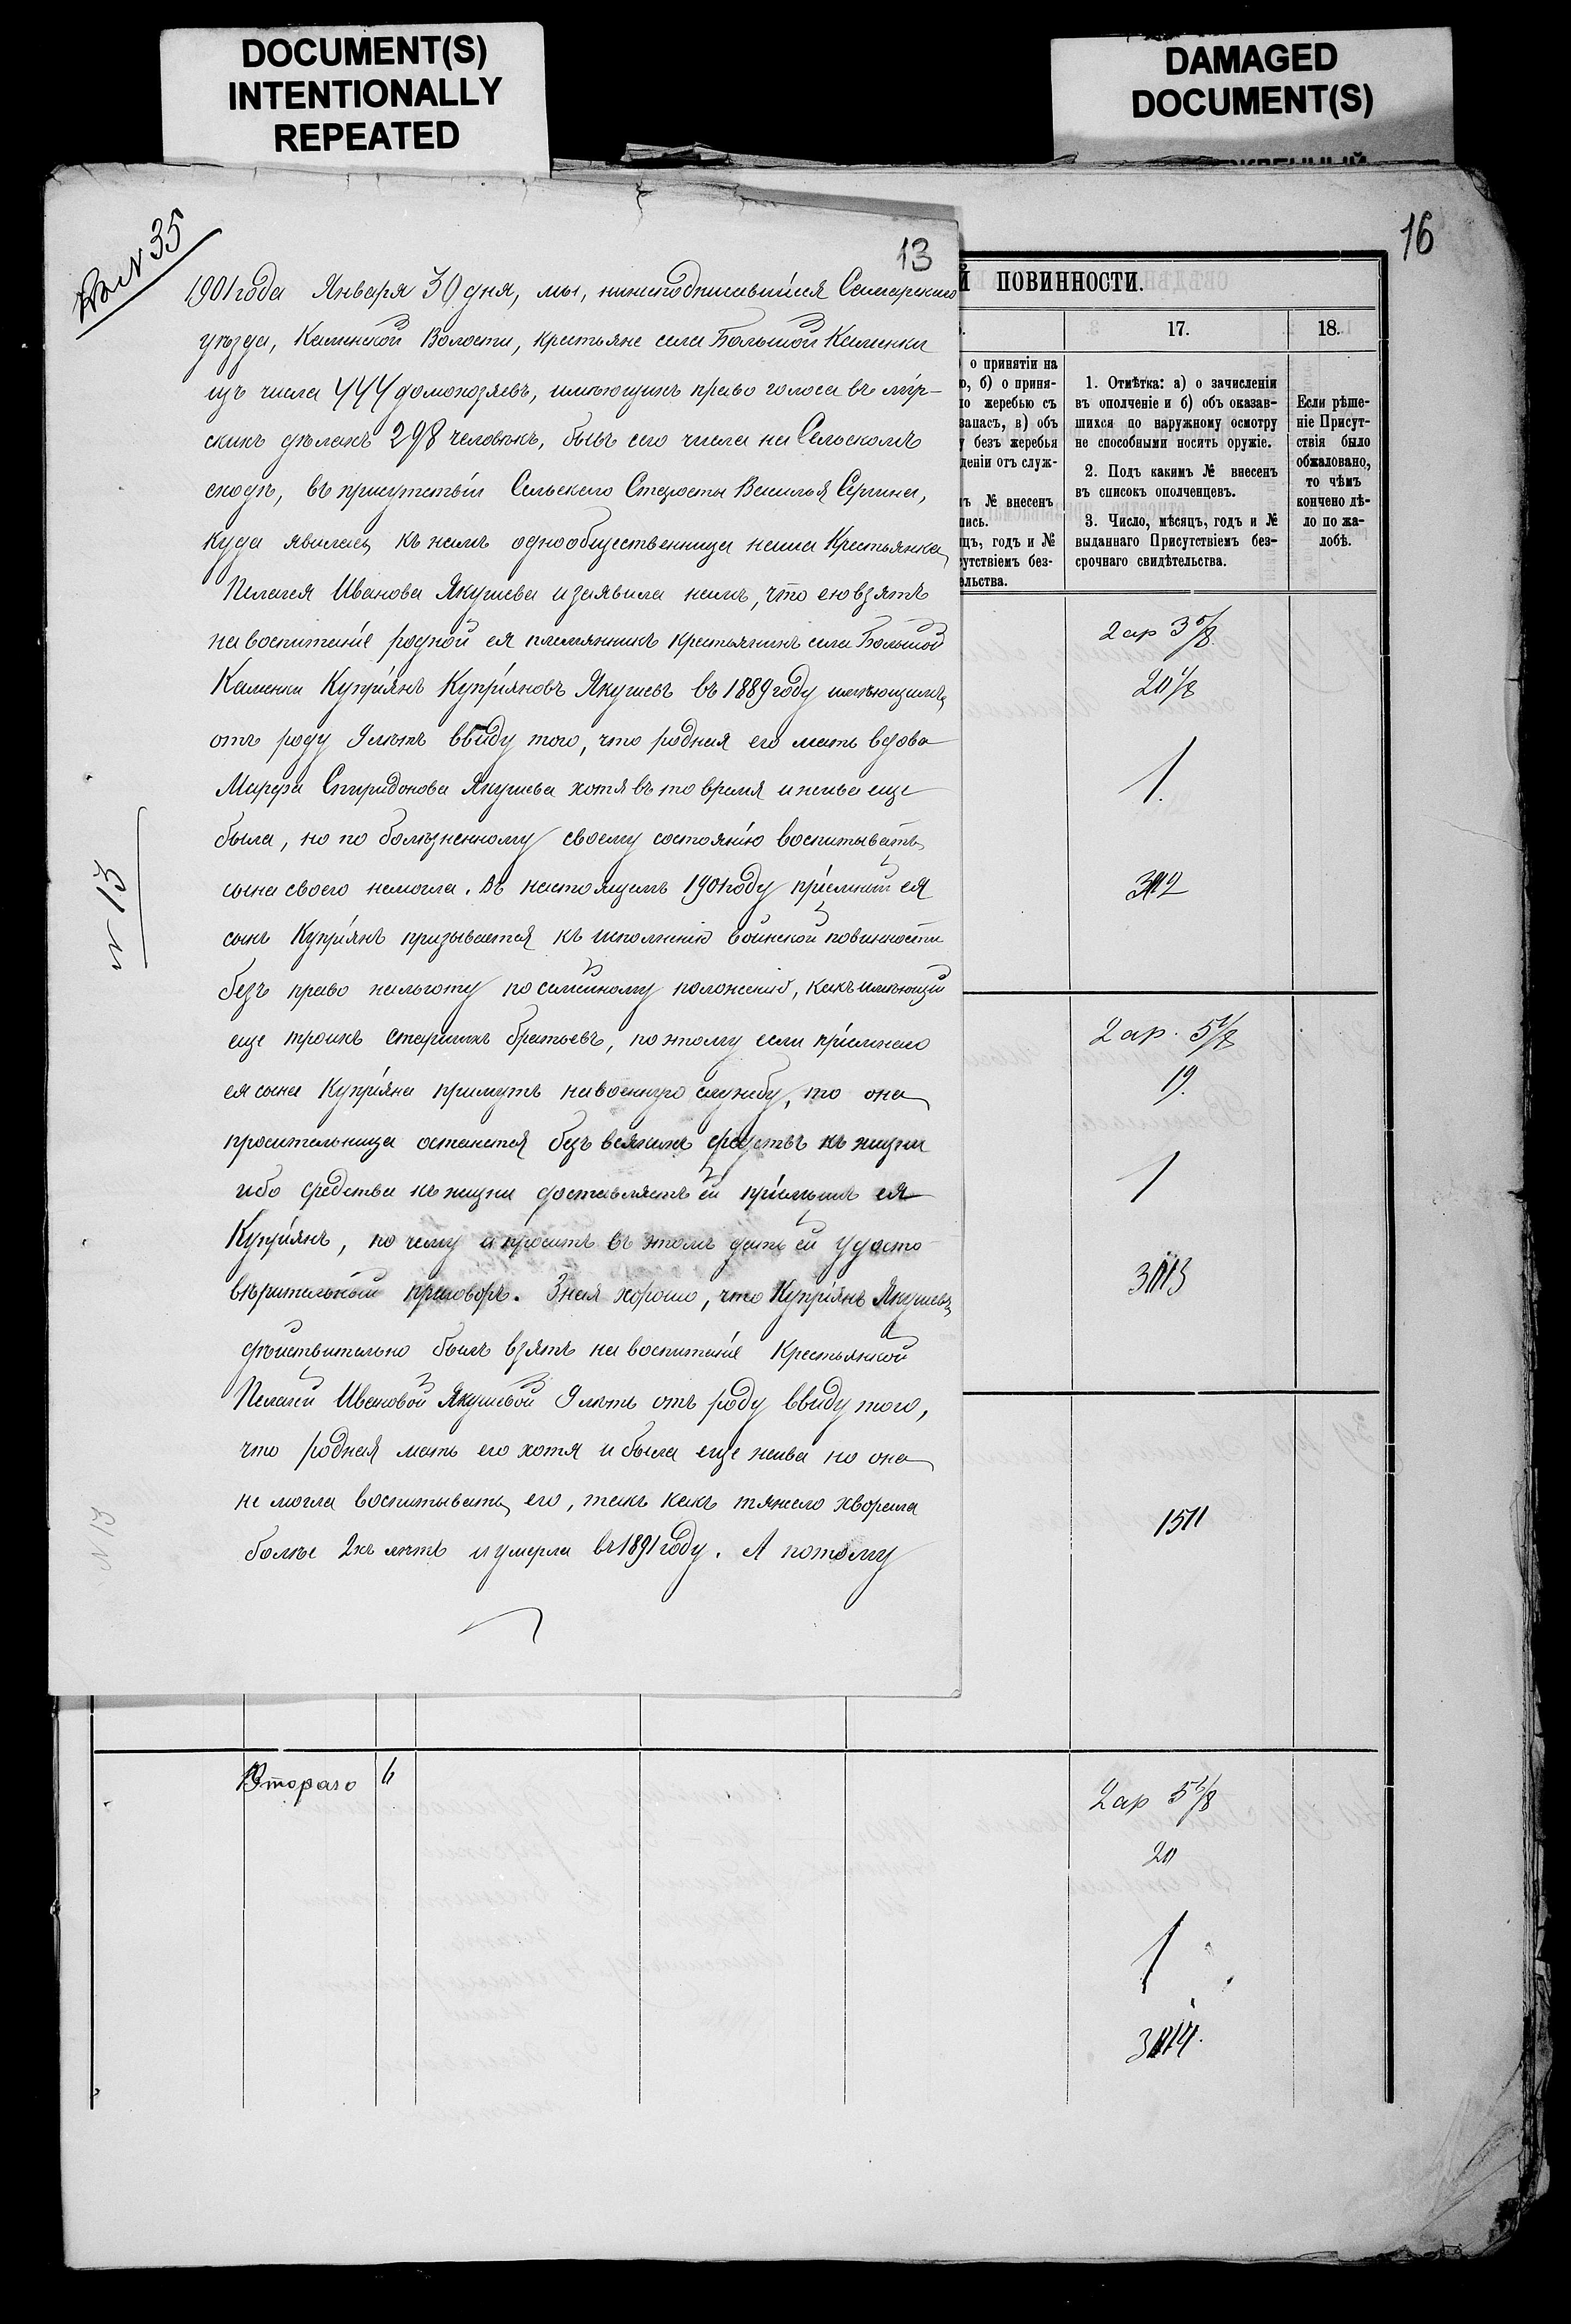 DOCUMENT(S)
INTENTIONALLY
REPEATED
DAMAGED
DOCUMENT(S)
16
№ 35
13
1901 года Января 30 дня, мы, нижеподписавшiися Самарскаго
уѣзда, Каменской Волости, крестьяне села Большой Каменки
изъ числа 444 домохозяевъ, имѣющихъ право голоса въ мiр-
скихъ дѣлахъ 298 человѣкъ, бывъ сего числа на Сельскомъ
сходѣ, въ присутствiи Сельскаго Старосты Василья Сергина,
куда явилась къ намъ однообщественница наша Крестьянка
Пелагея Иванова Якушева и заявила намъ, что ею взятъ
на воспитанiе родной ея племянникъ крестьянинъ села Большой
Каменки Купрiянъ Купрiяновъ Якушевъ въ 1889 году имѣющимъ
отъ роду 9 лѣтъ ввиду того, что родная его мать вдова
Марфа Спиридонова Якушева хотя въ то время и жива еще
была, но по болѣзненному своему состоянiю воспитывать
сына своего немогла. Въ настоящемъ 1901 году прiемный ея
сынъ Купрiянъ призывается къ исполненiю воинской повинности
безъ право на льготу по семейному положенiю, какъ имѣющiй
еще троихъ старшихъ братьевъ, по этому если прiемнаго
ея сына Купрiяна примутъ на военную службу, то она
просительница останется безъ всякихъ средствъ къ жизни
ибо средства къ жизни доставляетъ ей прiемышъ ея
Купрiянъ, по чему и проситъ въ этомъ дать ей удосто-
вѣрительный приговоръ. Зная хорошо, что Купрiянъ Якушевъ
дѣйствительно былъ взятъ на воспитанiе Крестьянкой
Пелагеей Ивановой Якушевой 9 лѣтъ отъ роду ввиду того,
что родная мать его хотя и была еще жива но она
не могла воспитывать его, такъ какъ тяжело хворала
болѣе 2хъ лѣтъ и умерла въ 1891 году. А потому
№ 13
№ 13
Й ПОВИННОСТИ.
17.
18.
о принятiи на
о, б) о приня-
по жеребью съ
запасъ, в) объ
у безъ жеребья
денiи отъ служ-
ъ № внесенъ
пись.
цъ, годъ и №
сутствiемъ без-
ельства.
1. Отмѣтка: а) о зачисленiи
въ ополченiе и б) объ оказав-
шихся по наружному осмотру
не способными носить оружiе.
2. Подъ какимъ № внесенъ
въ списокъ ополченцевъ.
3. Число, мѣсяцъ, годъ и №
выданнаго Присутствiемъ без-
срочнаго свидѣтельства.
Если рѣше-
нiе Присут-
ствiя было
обжаловано,
то чѣмъ
кончено дѣ-
ло по жа-
лобѣ.
2 ар
1.
2 ар. 5
19.
1
Второго 6
2 ар 5
20
1